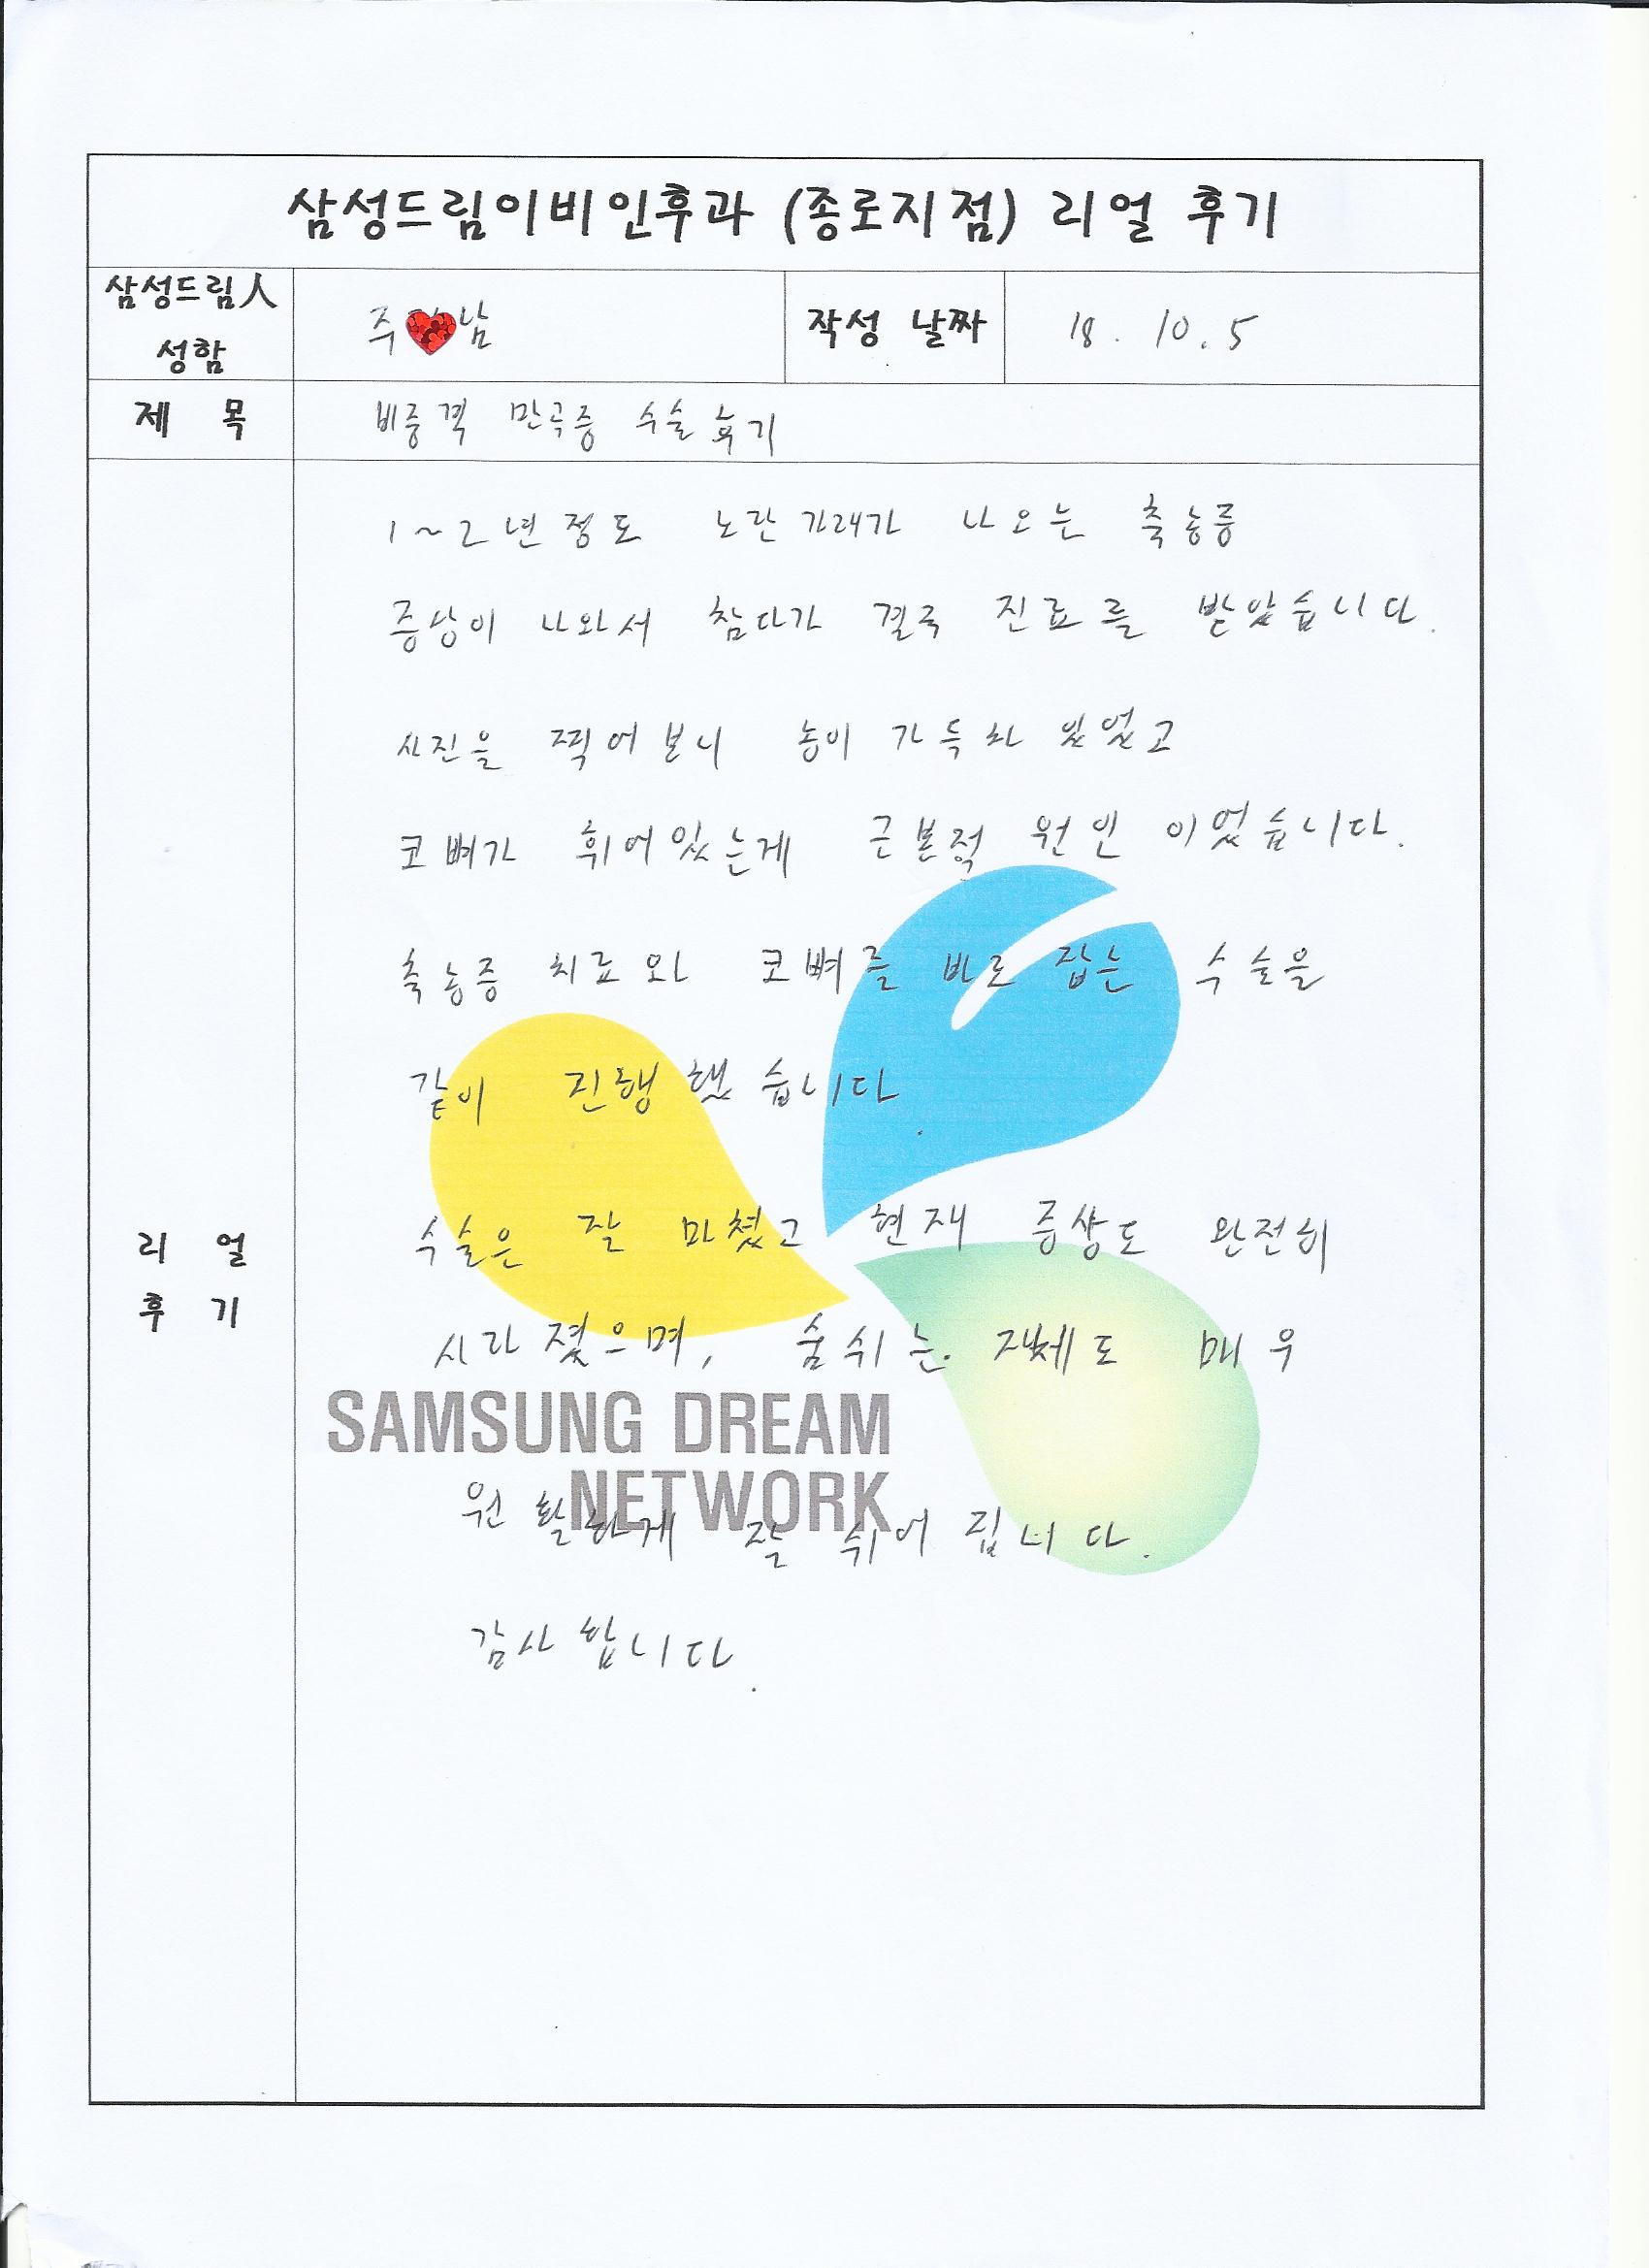 삼성드림이비인후과 (종로지점) 리얼 후기
삼성드림人
성함
주 남
작성 날짜
18. 10. 5
제 목
비중격 만곡증 수술 후기
1~2년정도 노란 가래가 나오는 축농증
증상이 나와서 참다가 결국 진료를 받았습니다.
사진을 찍어보니 농이 가득차 있었고
코뼈가 휘어있는게 근본적 원인 이었습니다.
축농증 치료와 코뼈를 바로 잡는 수술을
같이 진행했습니다.
수술은 잘 마쳤고 현재 증상도 완전히
사라졌으며, 숨쉬는 자체도 매우
원활하게 잘 쉬어집니다.
감사합니다.
리 얼
후 기
SAMSUNG DREAM
NETWORK